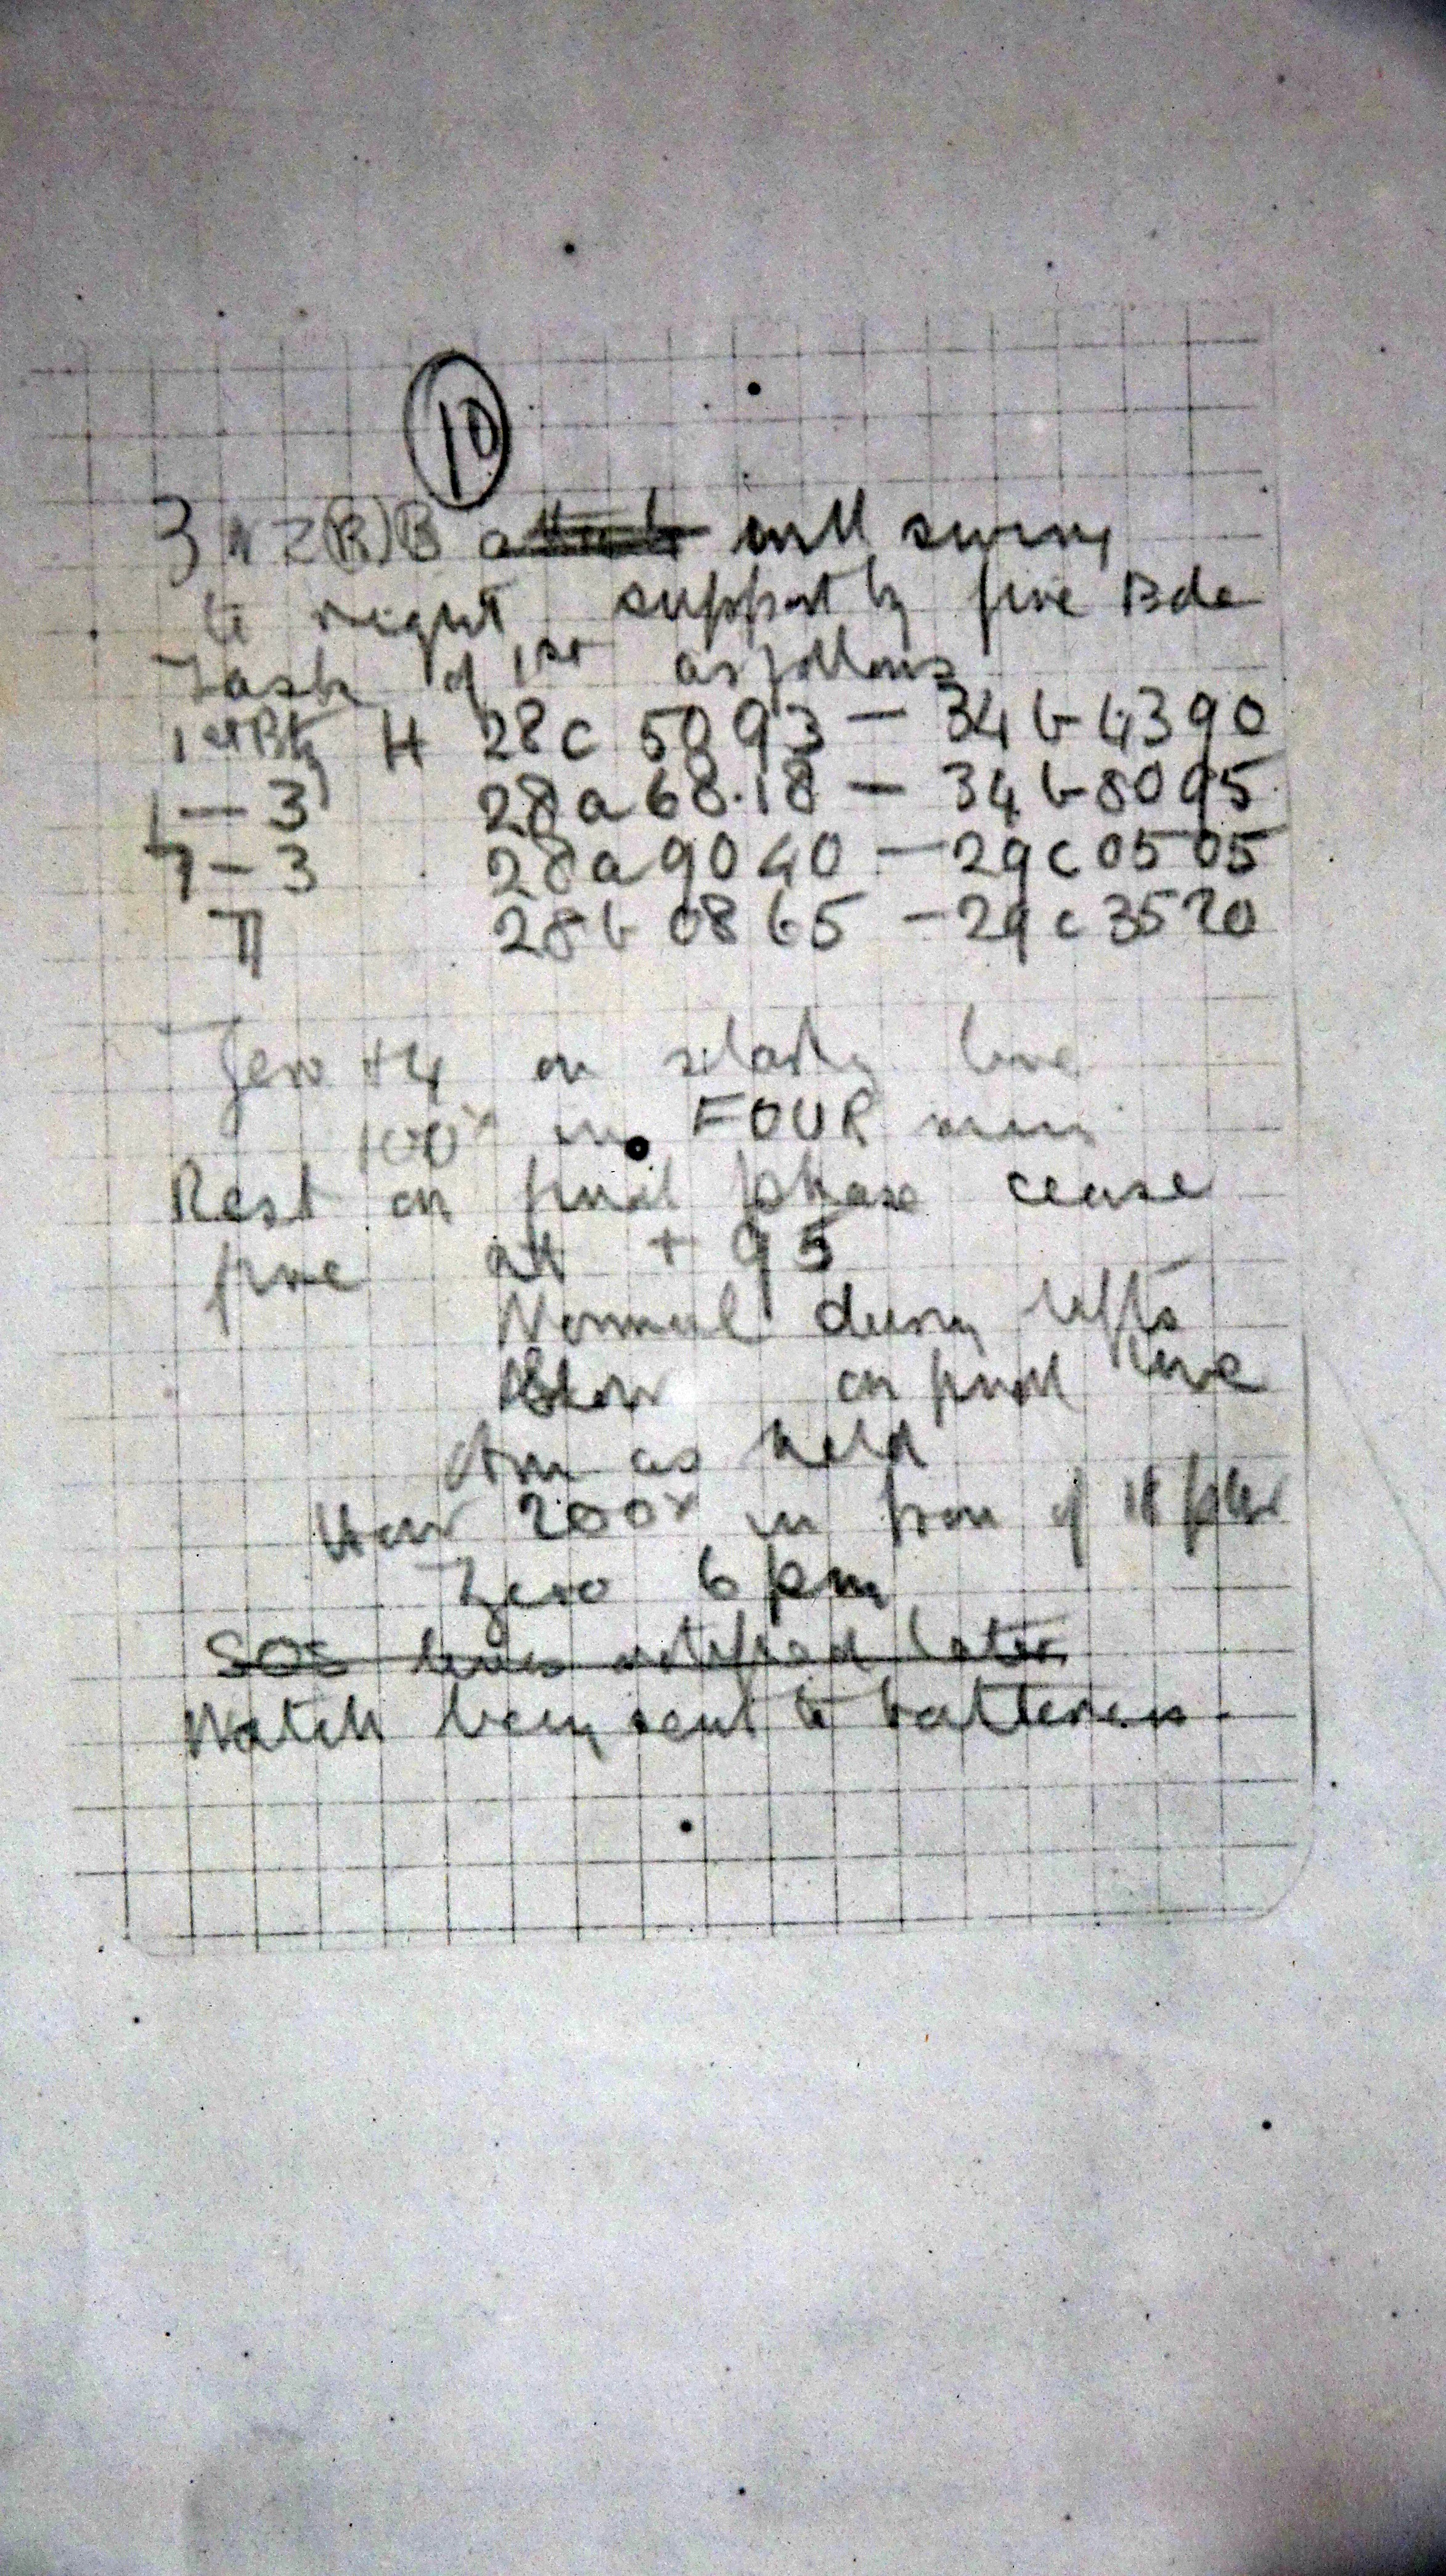 10
3 NZ(R)B attack will swing
to right support by five Bde
Task of 1st as follows
1st Bty H 28c 5093 — 34b 4390
1 — 3 28a 68.18 — 34b 8095
7 — 3 28a 9040 — 29c 0505
28b 0865 — 29c 3520
Zero +4 on starting line
100x in FOUR mins
Rest on final phase cease
fire at + 95
Normal during lifts
Slow on final line
Am as held
How 200x in fron of 18 pdr
Zero 6 pm
SOS lines notified later
Watch being sent to batteries.